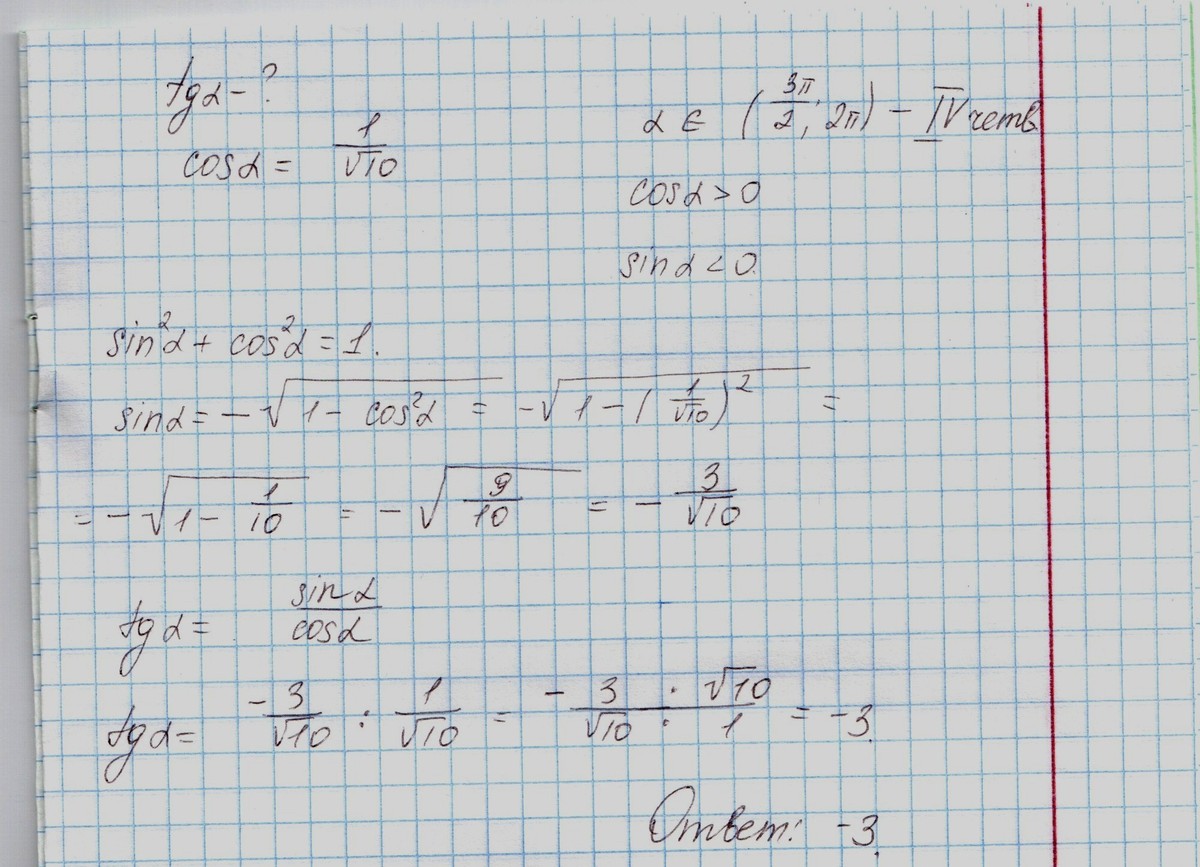 tgα - ?
cosα = 1/√10
α ∈ (3π/2; 2π) - IV четв
cosα > 0
sinα < 0.
sin²α + cos²α = 1.
sinα = -√(1 - cos²α) = -√(1 - (1/√10)²) =
= -√(1 - 1/10) = -√(9/10) = -3/√10
tgα = sinα/cosα
tgα = -3/√10 : 1/√10 = -3/√10 · √10/1 = -3.
Ответ: -3.